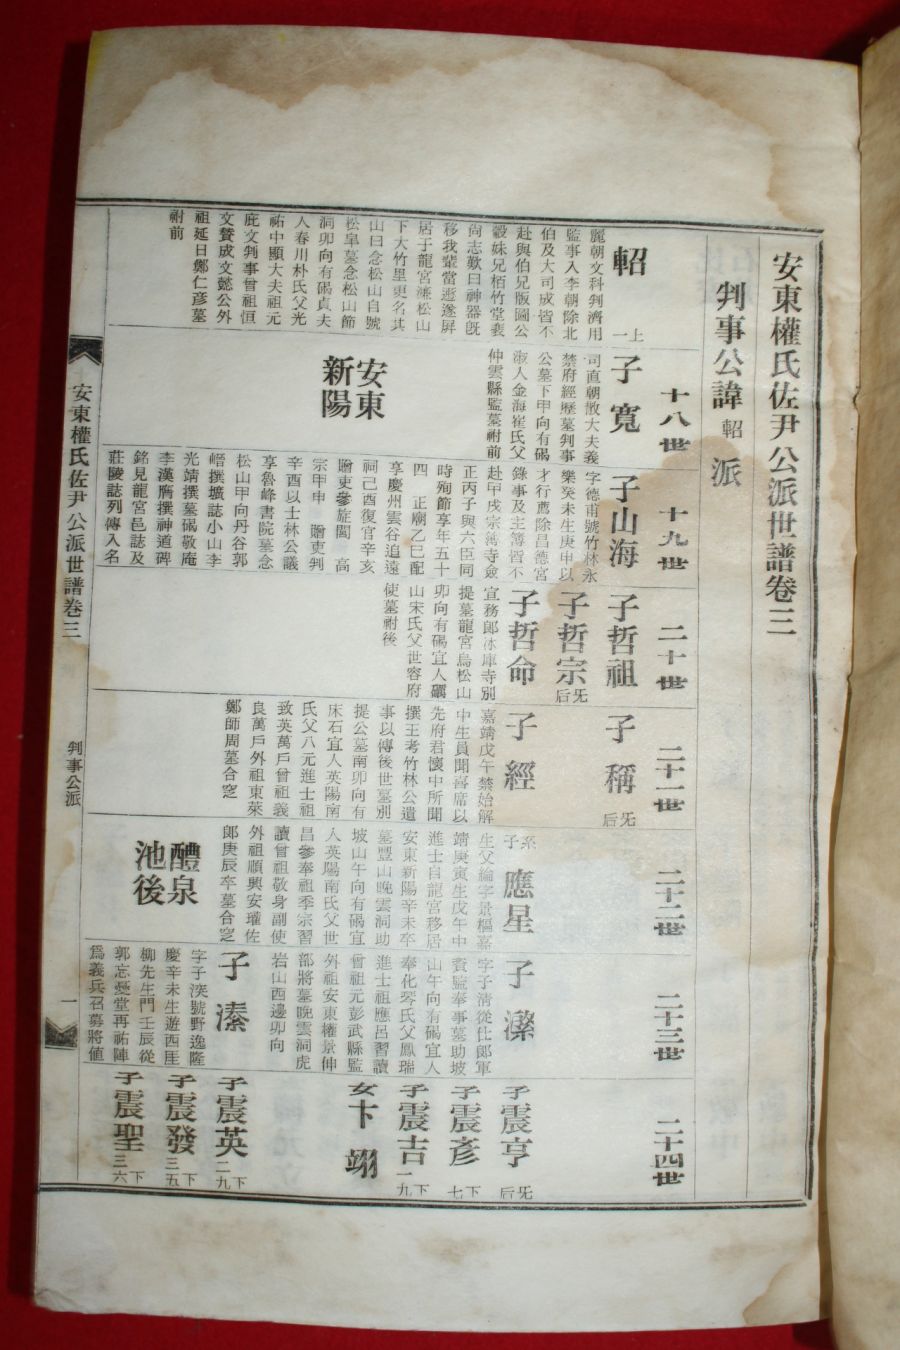 安東權氏佐尹公派世譜卷三
判事公諱軺派
十八世
十九世
二十世
二十一世
二十二世
二十三世
二十四世
軺
上一
麗朝文科判濟用
監事入李朝除北
伯及大司成皆不
赴與伯兄版圖公
轂妹兄栢竹堂裵
尚志歎曰神器旣
移我輩當遯遂屏
居于龍宮漣松山
下大竹里更名其
山曰念松山自號
松皐墓念松山節
洞卯向有碣貞夫
人春川朴氏父光
祐中顯大夫祖元
庇文判事曾祖恒
文贊成文懿公外
祖延日鄭仁彦墓
祔前
子寬
司直朝散大夫義
禁府經歷墓判事
公墓下甲向有碣
淑人金海崔氏父
仲雲縣監墓祔前
安東
新陽
子山海
字德甫號竹林永
樂癸未生庚申以
才行薦除昌德宮
錄事及主簿皆不
赴甲戌宗簿寺僉
正丙子與六臣同
時殉節享年五十
四 正廟乙巳配
享慶州雲谷追遠
祠己酉復官辛亥
贈吏參旌閭 高
宗甲申 贈吏判
辛酉以士林公議
享魯峰書院墓念
松山甲向丹谷郭
𡺽撰壙誌小山李
光靖撰墓碣敬庵
李漢膺撰神道碑
銘見龍宮邑誌及
莊陵誌列傳入名
子哲祖
子哲宗
旡后
子哲命
宣務郞氷庫寺別
提墓龍宮烏松山
卯向有碣宜人礪
山宋氏父世容府
使墓祔後
子稱
旡后
子經
嘉靖戊午禁始解
中生員聞喜席以
先府君懷中所聞
撰王考竹林公遺
事以傳後世墓別
提公墓南卯向有
床石宜人英陽南
氏父八元進士祖
致英萬戶曾祖義
良萬戶外祖東萊
鄭師周墓合窆
系子應星
生父綸字景樞嘉
靖庚寅生戊午中
進士自龍宮移居
安東新陽辛未卒
墓豐山晩雲洞助
坡山午向有碣宜
人英陽南氏父世
昌參奉祖季宗習
讀曾祖敬身副使
外祖順興安瓘佐
郞庚辰卒墓合窆
醴泉
池後
子潔
字子淸從仕郞軍
資監奉事墓助坡
山午向有碣宜人
奉化琴氏父鳳瑞
進士祖應呂習讀
曾祖元彭武縣監
外祖安東權景伸
部將墓晩雲洞虎
岩山酉邊卯向
子溱
字子浹號野逸隆
慶辛未生遊西厓
柳先生門壬辰從
郭忘憂堂再祐陣
爲義兵召募將値
子震亨
旡后
子震彥
下七
子震吉
下一九
女卞翊
子震英
下二九
子震發
下三五
子震聖
下三六
安東權氏佐尹公派世譜卷三
判事公派
一